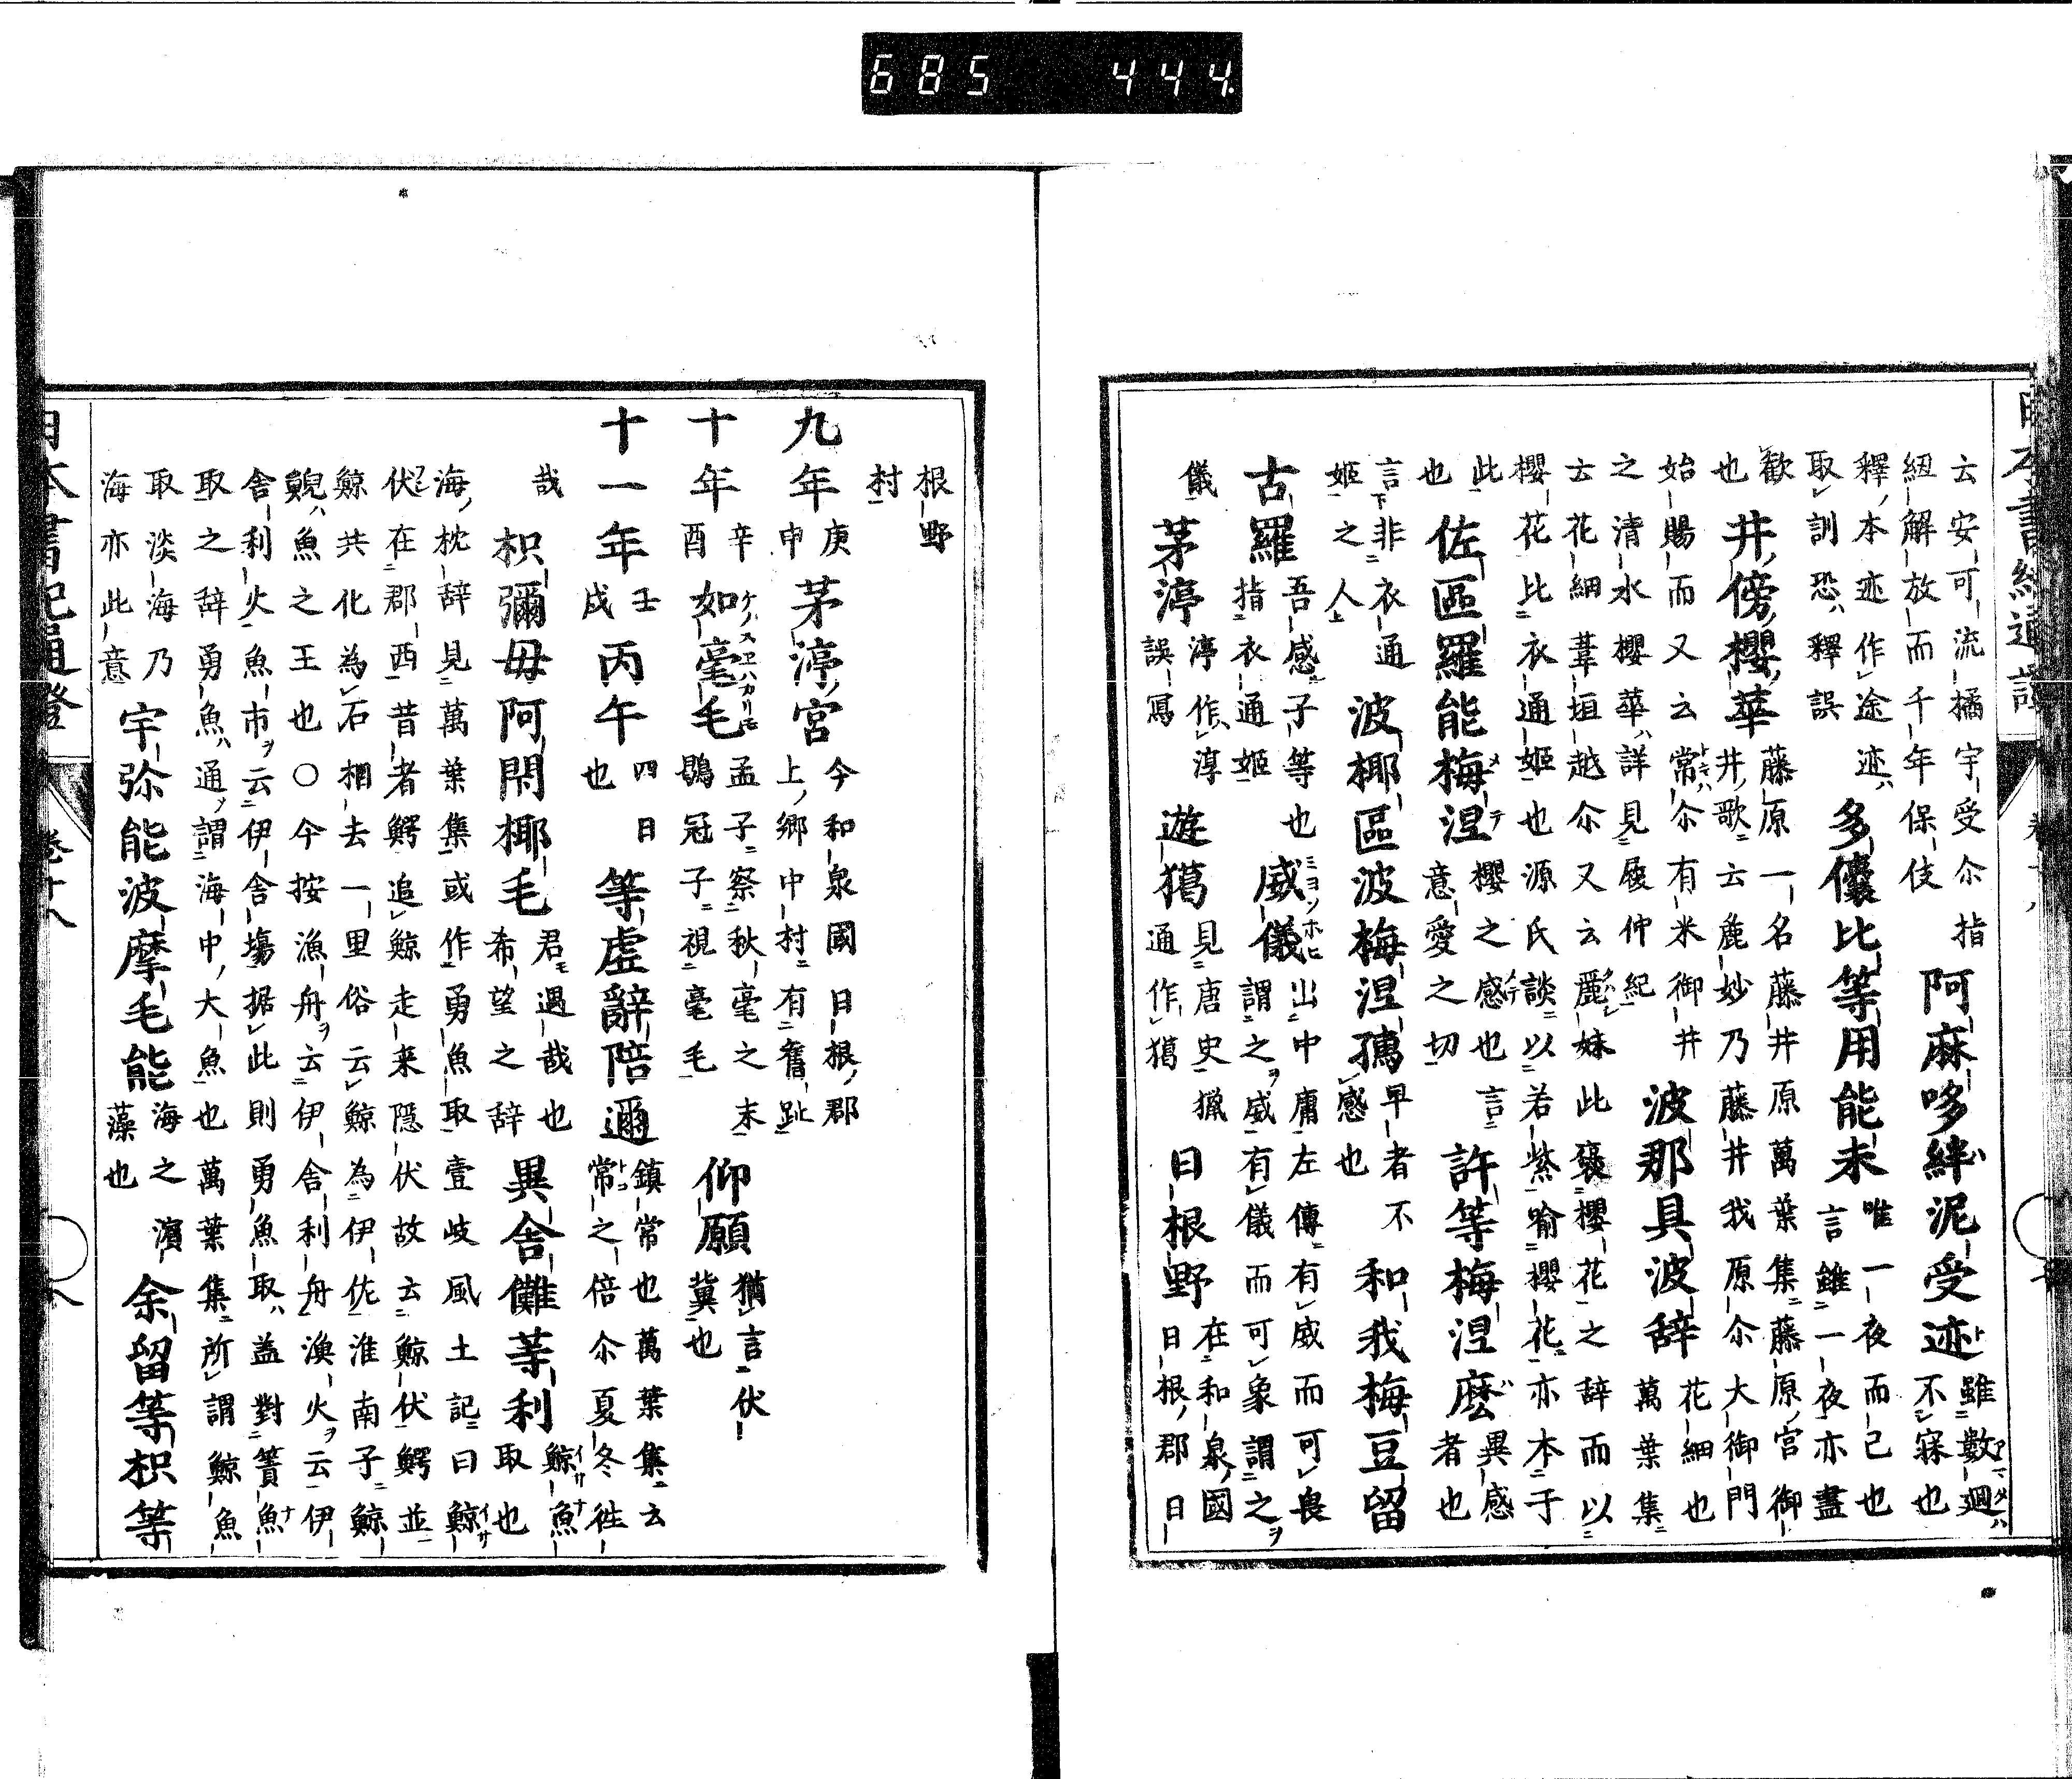 685 444
云安可流橘宇受尒指
紐解放而千年保伎
阿麻哆絆泥受迹
雖數週
不寐也
釋本迹作途迹
取訓恐釋誤
多儺比等用能未
唯一夜而已也
言雖一夜亦盡
歡
也
井傍櫻華
藤原一名藤井原萬葉集藤原宮御
井歌云麁妙乃藤井我原尒大御門
始賜而又云常尒有米御井
之清水櫻華詳見履仲紀
波那具波辞
花細也
萬葉集
云花細葦垣越尒又云麗妹此褒櫻花之辞而以
櫻花比衣通姫也源氏談以若紫喻櫻花亦本于
此
也
佐區羅能梅涅
櫻之感也言
意愛之切
許等梅涅麼
異感
者也
言非衣通
姫之人
波椰區波梅涅孺
早者不
感也
和我梅豆留
古羅
吾感子等也
指衣通姫
威儀
出中庸左傳有威而可畏
謂之威有儀而可象謂之
儀
茅渟
渟作淳
誤寫
遊獦
見唐史獵
通作獦
日根野
在和泉國
日根郡日
根野
村
九年
庚
申
茅渟宮
今和泉國日根郡
上鄉中村有舊趾
十年
辛
酉
如毫毛
孟子察秋毫之末
鶡冠子視毫毛
仰願
猶言伏
冀也
十一年
壬
戌
丙午
四日
也
等虚辭陪邇
鎮常也萬葉集云
常之倍尒夏冬徃
哉
枳彌毋阿閇椰毛
君遇哉也
希望之辞
異舍儺等利
鯨魚
取也
海枕辞見萬葉集或作勇魚取壹岐風土記曰鯨
伏在郡西昔者鰐追鯨走来隠伏故云鯨伏鰐並
鯨共化為石相去一里俗云鯨為伊佐淮南子鯨
鯢魚之王也〇今按漁舟云伊舍利舟漁火云伊
舍利火魚市云伊舍塲据此則勇魚取盖對簀魚
取之辞勇魚通謂海中大魚也萬葉集所謂鯨魚
取淡海乃
海亦此意
宇弥能波摩毛能
海之濱
藻也
余留等枳等
日本書紀通證 卷十八